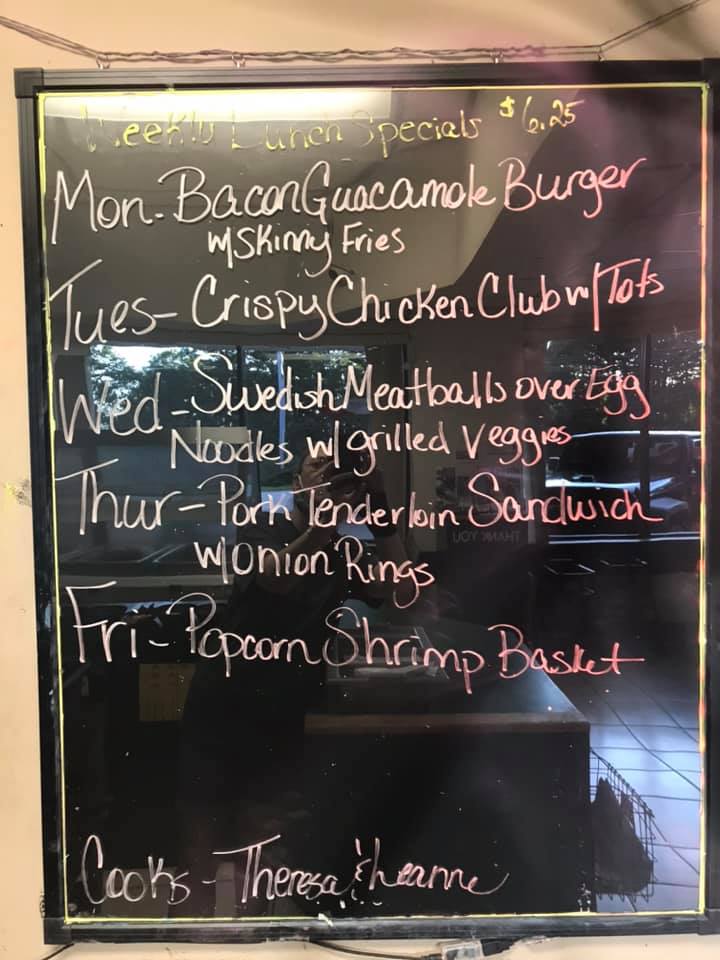 Weekly Lunch Specials $6.25
Mon- Bacon Guacamole Burger
w/Skinny Fries
Tues- Crispy Chicken Club w/Tots
Wed- Swedish Meatballs over Egg
Noodles w/ grilled Veggies
Thur- Pork Tenderloin Sandwich
w/Onion Rings
THANK YOU
Fri- Popcorn Shrimp Basket
Cooks - Theresa & Leanne